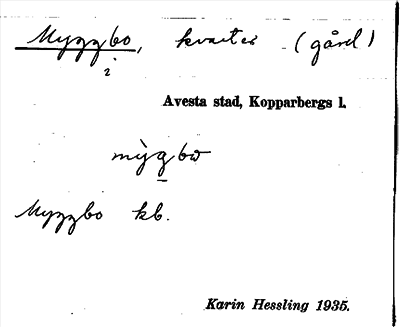 Myggbo, kvarter (gård)
i
Avesta stad, Kopparbergs l.
mỳgbo
Myggbo kb.
Karin Hessling 1935.